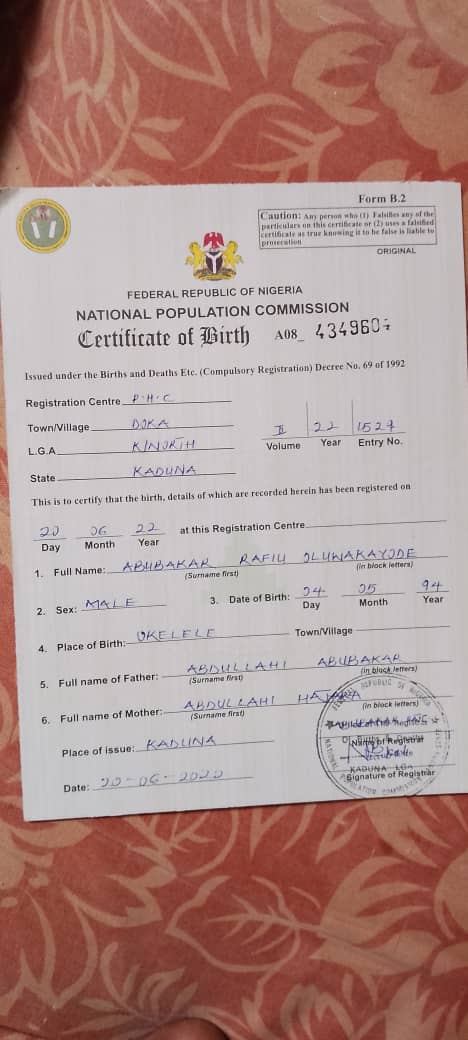 Form B.2
Caution: Any person who (1) Falsifies any of the
particulars on this certificate or (2) uses a falsified
certificate as true knowing it to be false is liable to
prosecution
ORIGINAL
FEDERAL REPUBLIC OF NIGERIA
NATIONAL POPULATION COMMISSION
Certificate of Birth A08_ 434960
Issued under the Births and Deaths Etc. (Compulsory Registration) Decree No. 69 of 1992
Registration Centre P.H.C
Town/Village DOKA
L.G.A K/NORTH
State KADUNA
II 22 1527
Volume Year Entry No.
This is to certify that the birth, details of which are recorded herein has been registered on
20 06 22 at this Registration Centre
Day Month Year
1. Full Name: ABUBAKAR RAFIU OLUWAKAYODE
(Surname first) (in block letters)
2. Sex: MALE 3. Date of Birth: 04 05 94
Day Month Year
4. Place of Birth: OKELELE Town/Village
5. Full name of Father: ABDULLAHI ABUBAKAR
(Surname first) (in block letters)
6. Full name of Mother: ABDULLAHI
(Surname first) (in block letters)
Place of issue: KADUNA
Name of Registrar
Date: 20-06-2022
KADUNA LGA
Signature of Registrar